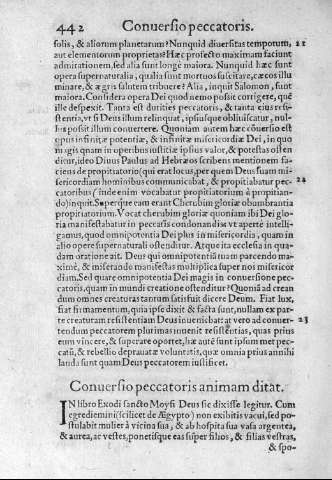 442 Conuersio peccatoris.
solis, & aliorum planetarum? Nunquid diuersitas temporum, 22
aut elementorum proprietas? Hæc profecto maximam faciunt
admirationem, sed alia sunt longè maiora. Nunquid hæc sunt
opera supernaturalia, qualia sunt mortuos suscitare, cæcos illu
minare, & ægris salutem tribuere? Alia, inquit Salomon, sunt
maiora. Considera opera Dei quod nemo possit corrigere, quē
ille despexit. Tanta est durities peccatoris, & tanta eius resi-
stentia, vt si Deus illum relinquat, ipsiusque obliuiscatur, nul-
lus possit illum conuertere. Quoniam autem hæc cōuersio est
opus infinitæ potentiæ, & infinitæ misericordiæ Dei, in quo
magis quam in operibus iustitiæ ipsius valor, & potestas osten
ditur, ideo Diuus Paulus ad Hebræos scribens mentionem fa-
ciens de propitiatorio (qui erat locus, per quem Deus suam mi-
sericordiam hominibus communicabat, & propitiabatur pec- 24
catoribus (inde enim vocabatur propitiatorium à propitian-
do) inquit. Superque eam erant Cherubim gloriæ obumbrantia
propitiatorium. Vocat cherubim gloriæ quoniam ibi Dei glo-
ria manifestabatur in peccatis condonandis vt apertè intelli-
gamus, quod omnipotentia Dei plus in misericordia, quam in
alio opere supernaturali ostenditur. Atque ita ecclesia in qua-
dam oratione ait. Deus qui omnipotentiā tuam parcendo ma-
ximè, & miserando manifestas multiplica super nos misericor
diam. Sed quare omnipotentia Dei magis in conuersione pec-
catoris, quam in mundi creatione ostenditur? Quoniā ad crean
dum omnes creaturas tantum satisfuit dicere Deum. Fiat lux,
fiat firmamentum, quia ipse dixit & facta sunt, nullam ex par-
te creaturam resistentiam Deus inueniebat: at vero ad conuer- 23
tendum peccatorem plurimas inuenit resistentias, quas prius
eum vincere, & superare oportet, hæ autē sunt ipsum met pec-
catū, & rebellio deprauatæ voluntatis, quæ omnia prius annihi
landa sunt quam Deus peccatorem iustificet.
Conuersio peccatoris animam ditat.
IN libro Exodi sancto Moysi Deus sic dixisse legitur. Cum
egrediemini (scilicet de Ægypto) non exibitis vacui, sed po-
stulabit mulier à vicina sua, & ab hospita sua vasa argentea,
& aurea, ac vestes, ponetisque eas super filios, & filias vestras,
& spo-